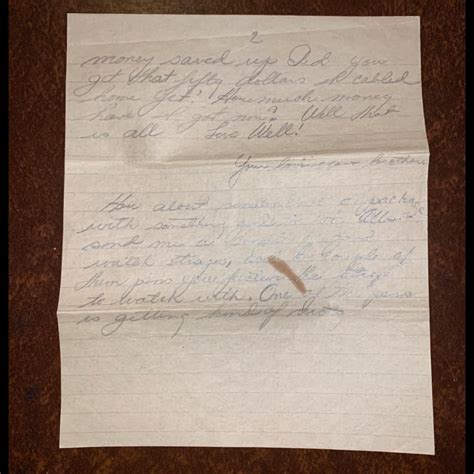 2
money saved up Did you
get that fifty dollars I cabled
home yet? How much money
have I got now? Well that
is all Love Well!
Your brother
How about sending me a package
with something good in it. Also
send me a
watch straps, and a couple of
them pins you fasten the straps
to watch with. One of the pins
is getting kind of